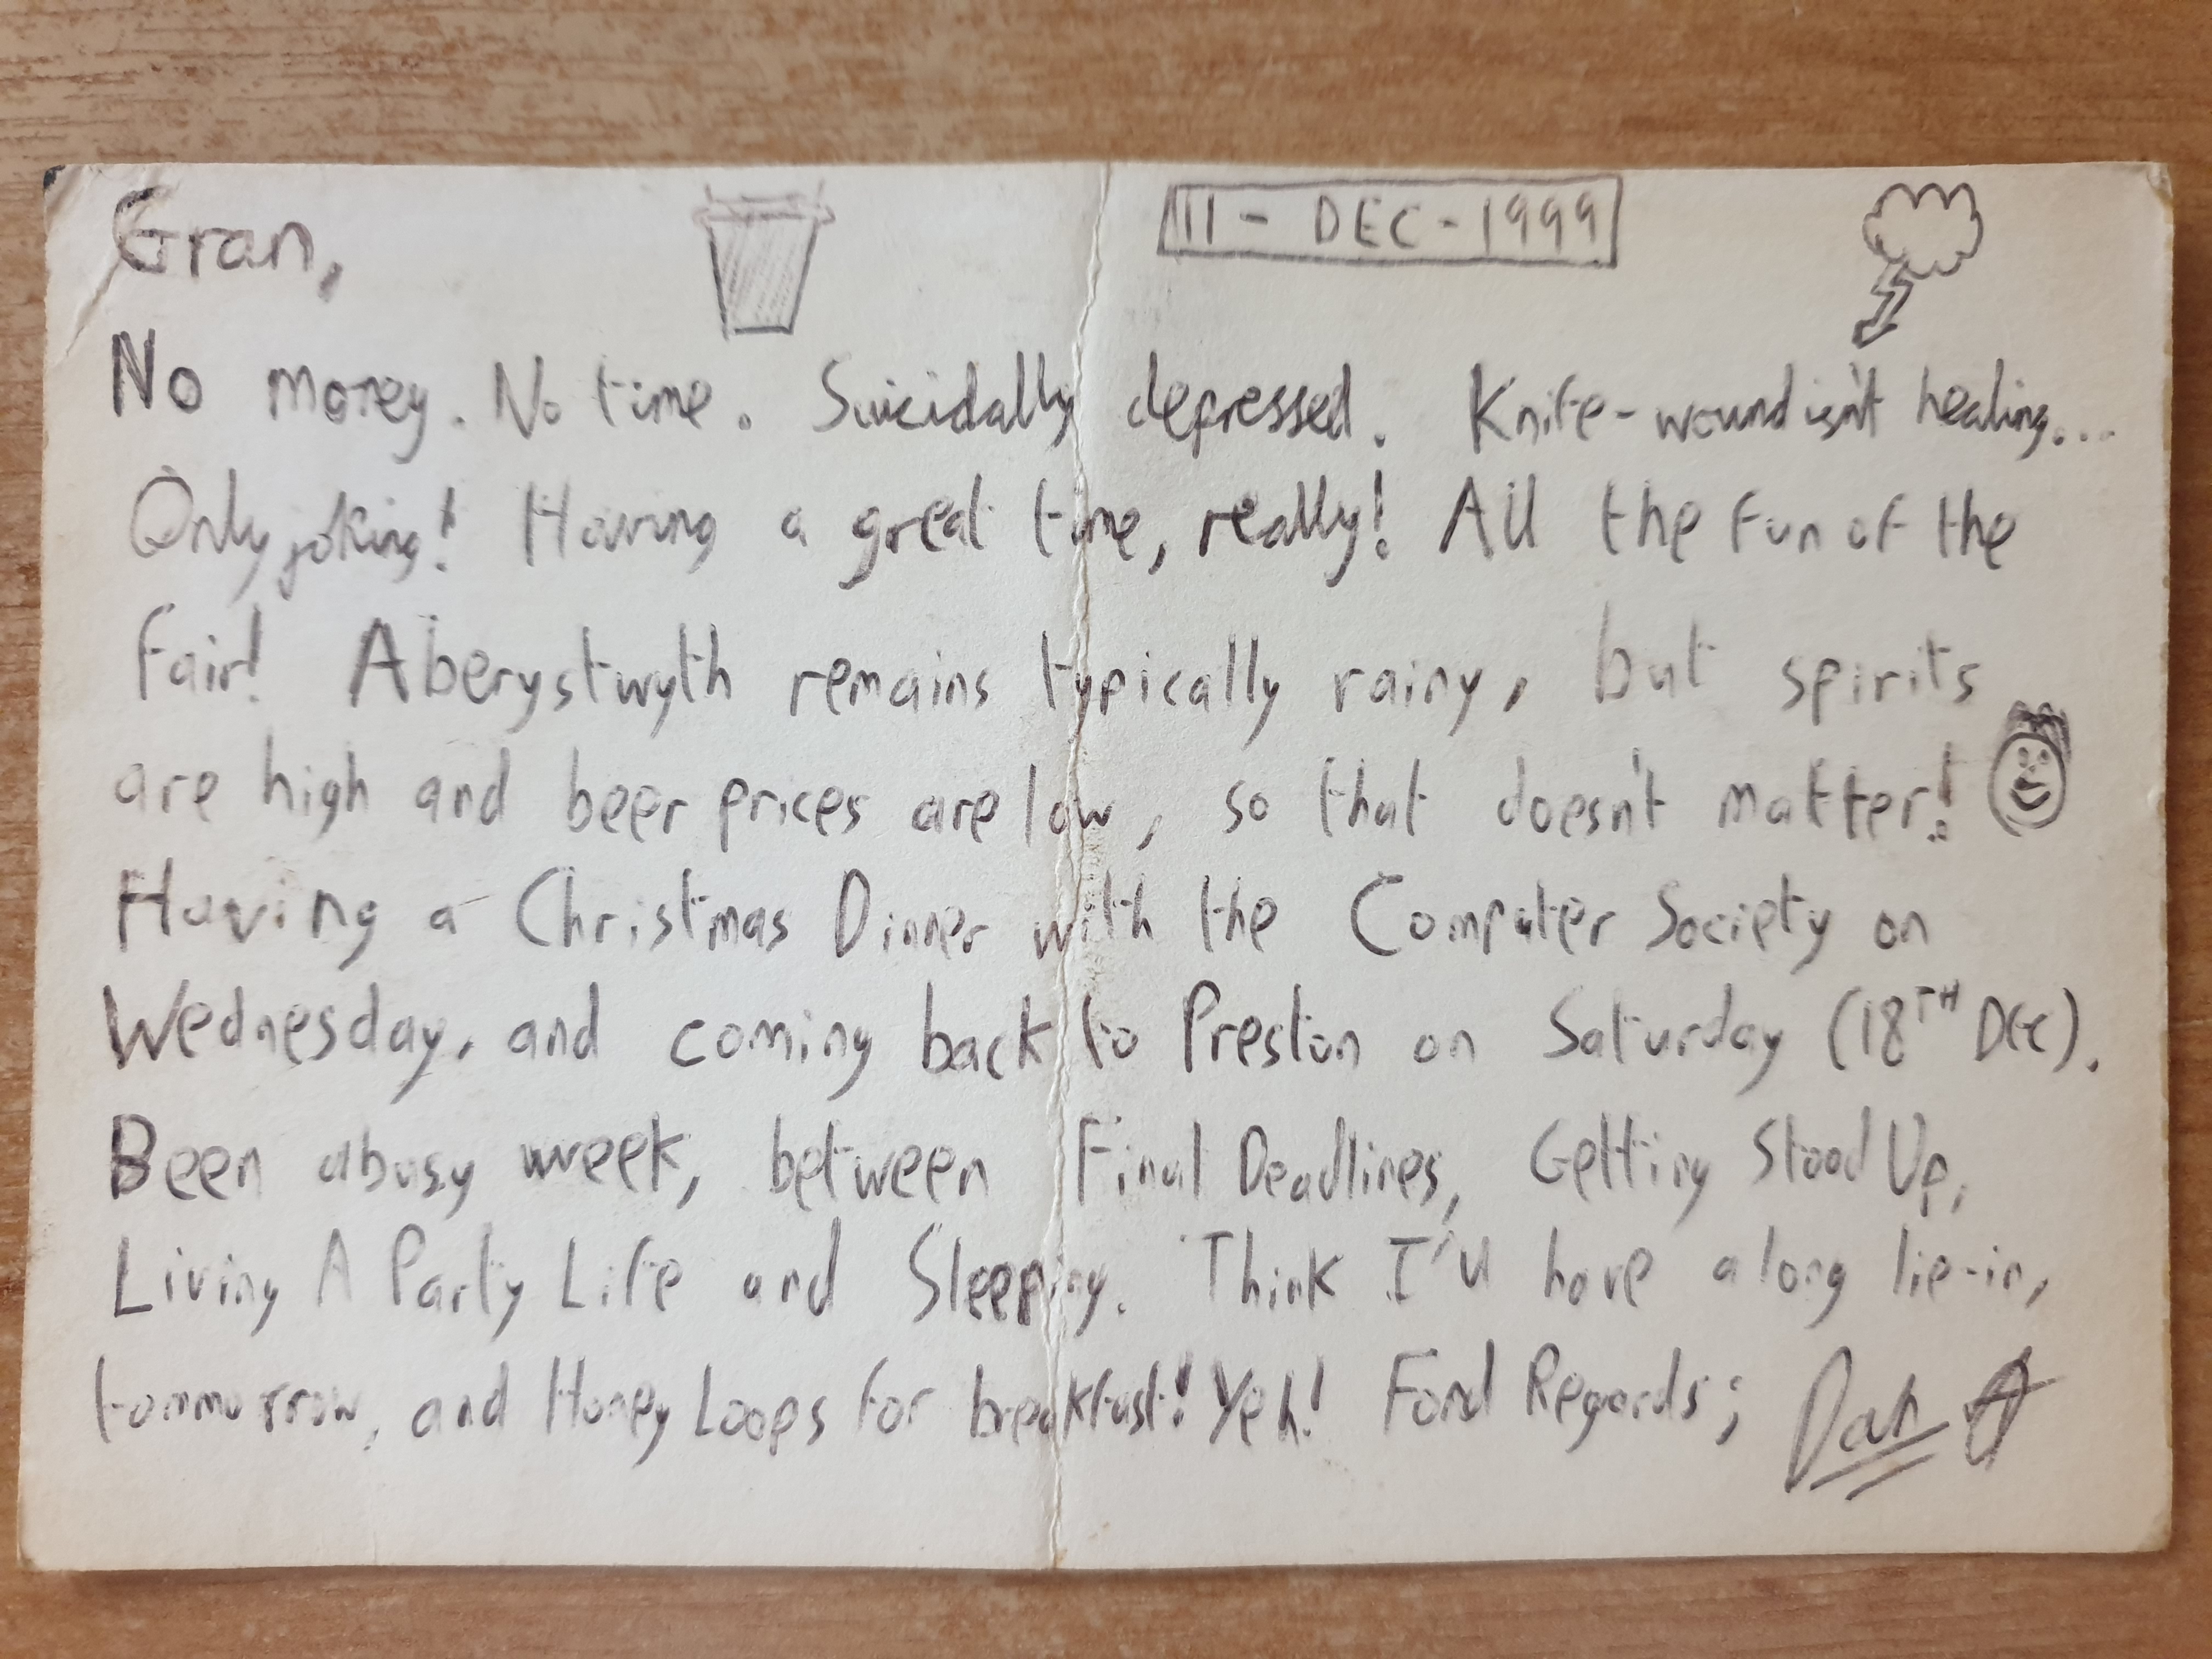 Gran,
11 - DEC - 1999
No money. No time. Suicidally depressed. Knife-wound isn't healing...
Only joking! Having a great time, really! All the fun of the
fair! Aberystwyth remains typically rainy, but spirits
are high and beer prices are low, so that doesn't matter!
Having a Christmas Dinner with the Computer Society on
Wednesday, and coming back to Preston on Saturday (18TH DEC).
Been a busy week, between Final Deadlines, Getting Stood Up,
Living A Party Life and Sleeping. Think I'll have a long lie-in,
tommorrow, and Honey Loops for breakfast! Yeh! Fond Regards; Dan